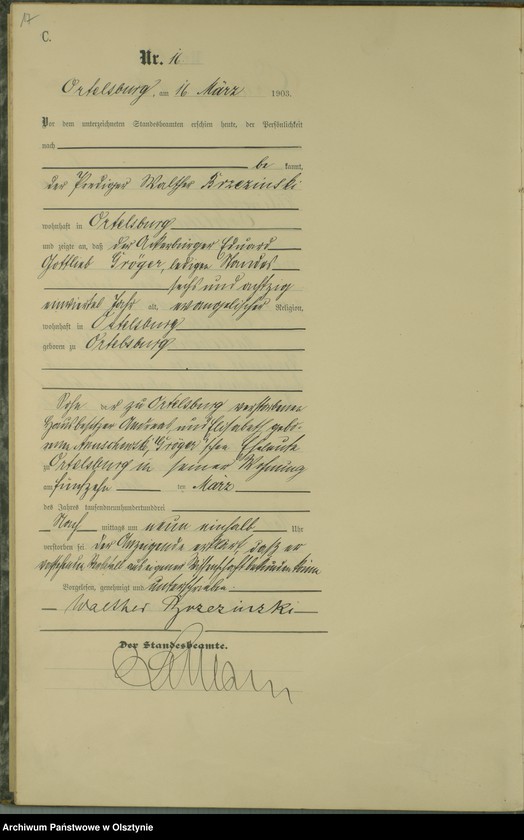 17
C.
Nr. 16
Ortelsburg, am 16 März 1903.
Vor dem unterzeichneten Standesbeamten erschien heute, der Persönlichkeit
nach
be kannt,
der Prediger Walther Brzezinski
wohnhaft in Ortelsburg
und zeigte an, daß der Ackerbürger Eduard
Gottlieb Gröger, ledigen Standes
sechs und achtzig
einviertel Jahr alt, evangelischer Religion,
wohnhaft in Ortelsburg
geboren zu Ortelsburg
Sohn der zu Ortelsburg verstorbenen
Hausbesitzer Andreas und Elisabeth gebo-
renen Gröger'schen Eheleute
zu Ortelsburg in seiner Wohnung
am fünfzehn ten März
des Jahres tausendneunhundertunddrei
Nach mittags um neun einhalb Uhr
verstorben sei. Der Anzeigende erklärt, daß er
aus eigener Wissenschaft bekunden könne
Vorgelesen, genehmigt und unterschrieben
Walther Brzezinski
Der Standesbeamte.
Archiwum Państwowe w Olsztynie